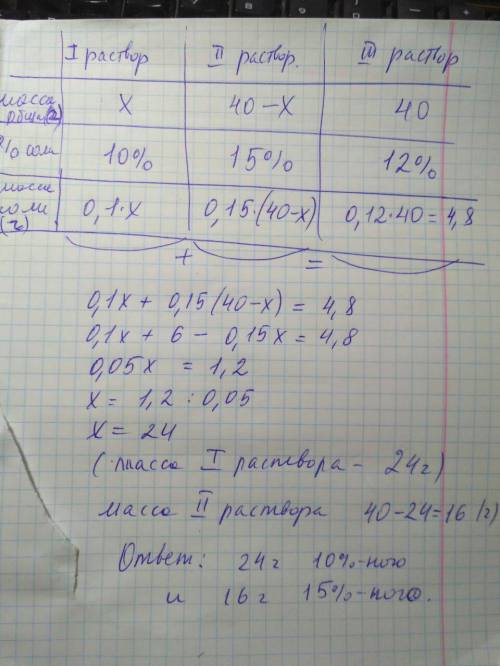 I раствор II раствор. III раствор
масса общая (г) X 40-X 40
% соли 10% 15% 12%
масса соли (г) 0,1·x 0,15·(40-x) 0,12·40=4,8
+ =
0,1x + 0,15(40-x) = 4,8
0,1x + 6 - 0,15x = 4,8
0,05x = 1,2
x = 1,2 : 0,05
x = 24
(масса I раствора - 24г)
масса II раствора 40-24=16 (г)
Ответ: 24г 10%-ного
и 16г 15%-ного.